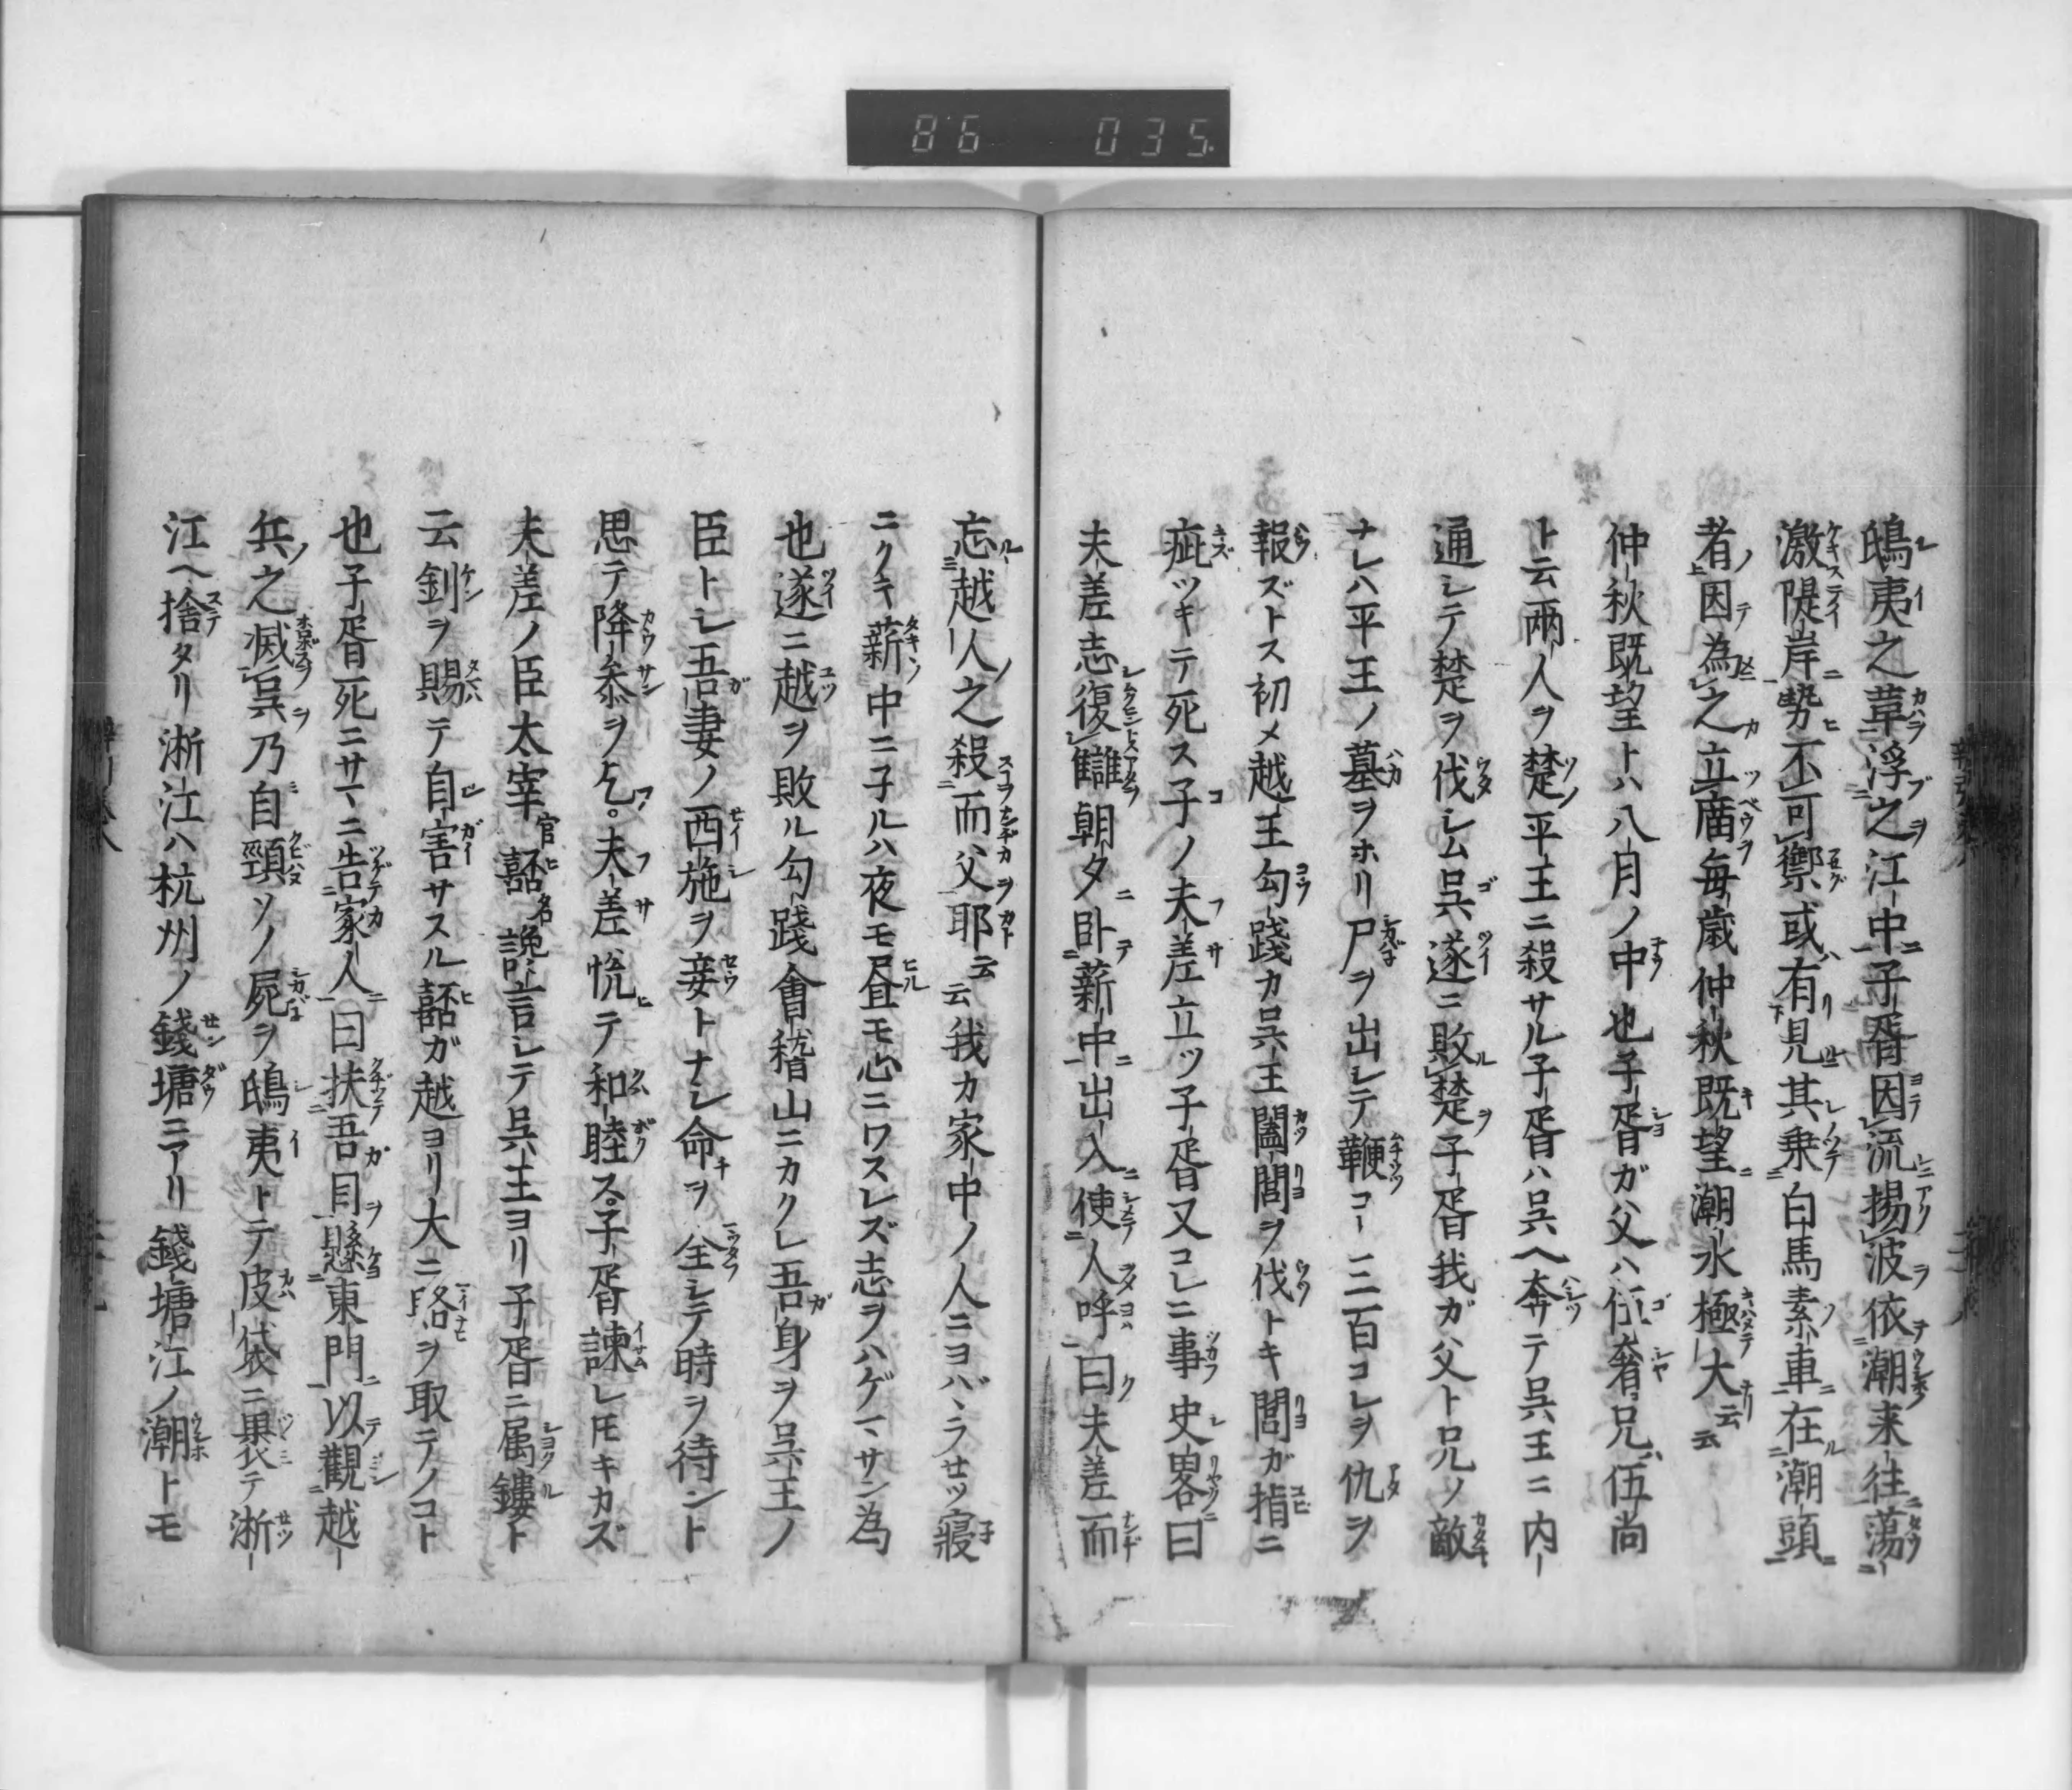 86 035
鴟夷之韋浮之江中子胥因流揚波依潮来往蕩
激隄岸勢不可禦或有見其乗白馬素車在潮頭
者因為之立廟毎歳仲秋既望潮水極大云云
仲秋既望トハ八月ノ中也子胥ガ父ハ伍奢兄ハ伍尚
ト云兩人ヲ楚平王ニ殺サル子胥ハ呉ヘ奔テ呉王ニ内
通シテ楚ヲ伐シム呉遂ニ敗楚子胥我ガ父ト兄ノ敵
ナレハ平王ノ墓ヲホリ尸ヲ出シテ鞭コ一三百コレヲ仇ヲ
報ズトス初メ越王勾踐カ呉王闔閭ヲ伐トキ閭ガ指ニ
疵ツキテ死ス子ノ夫差立ツ子胥又コレニ事史畧曰
夫差志復讎朝夕卧薪中出入使人呼曰夫差而
忘越人之殺而父耶云云我カ家中ノ人ニヨバヽラせツ寢
ニクキ薪中ニ子ルハ夜モ昼モ心ニワスレズ志ヲハゲマサン為
也遂ニ越ヲ敗ル勾踐會稽山ニカクレ吾身ヲ呉王ノ
臣トシ吾妻ノ西施ヲ妾トナシ命ヲ全シテ時ヲ待ント
思テ降参ヲ乞。夫差恱テ和睦ス子胥諫レ𪜈キカズ
夫差ノ臣太宰嚭讒言シテ呉王ヨリ子胥ニ属鏤ト
云釼ヲ賜テ自害サスル嚭ガ越ヨリ大ニ賂ヲ取テノコト
也子胥死ニサマニ告家人曰抉吾目懸東門以觀越
兵之滅呉乃自頸ソノ屍ヲ鴟夷トテ皮袋ニ褁テ淅
江ヘ捨タリ淅江ハ杭州ノ錢塘ニアリ錢塘江ノ潮トモ